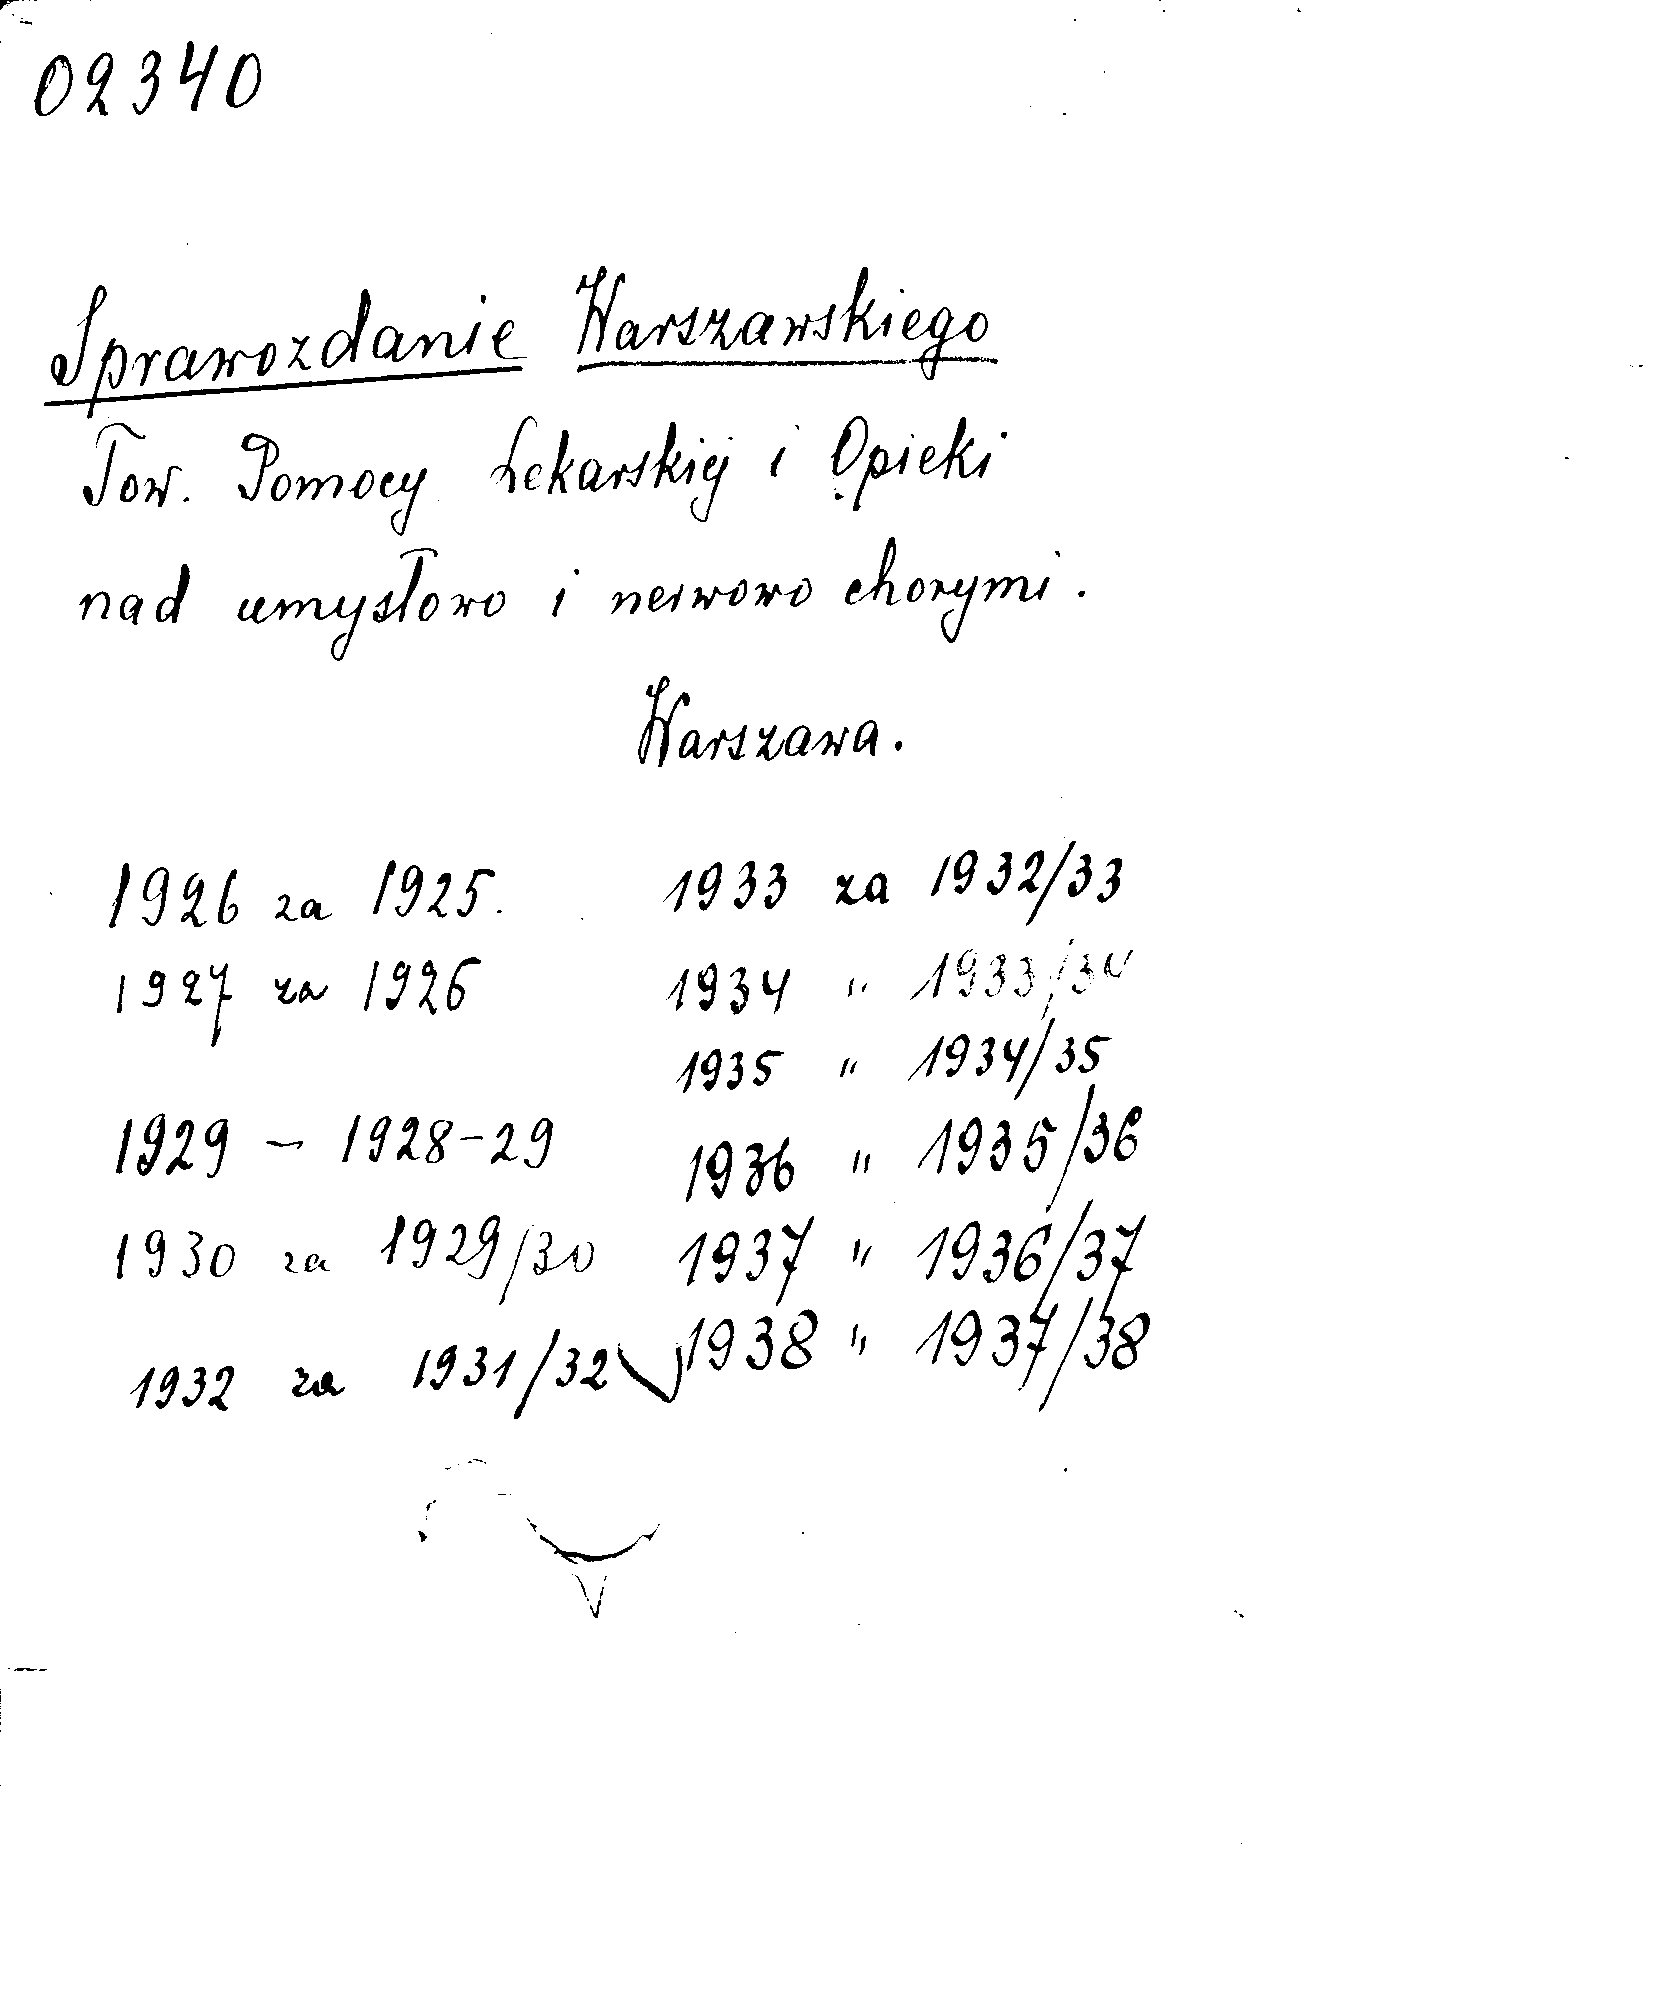 02340
Sprawozdanie Warszawskiego
Tow. Pomocy Lekarskiej i Opieki
nad umysłowo i nerwowo chorymi.
Warszawa.
1926 za 1925.
1927 za 1926
1929 - 1928-29
1930 za 1929/30
1932 za 1931/32
1933 za 1932/33
1934 " 1933/34
1935 " 1934/35
1936 " 1935/36
1937 " 1936/37
1938 " 1937/38